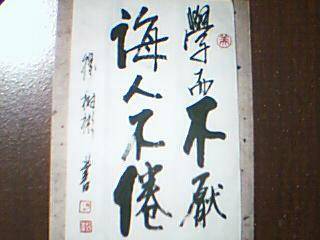 學而不厭
誨人不倦
樹彬書